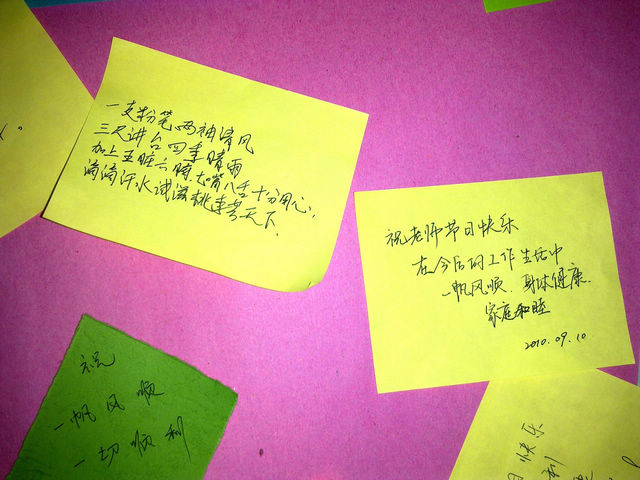 一支粉笔两袖清风
三尺讲台四季晴雨
加上五脏六腑七嘴八舌十分用心,
滴滴汗水诚滋桃李芳天下.
祝老师节日快乐
在今后的工作生活中
一帆风顺.身体健康.
家庭和睦
2010.09.10
祝
一帆风顺
一切顺利
快乐
利